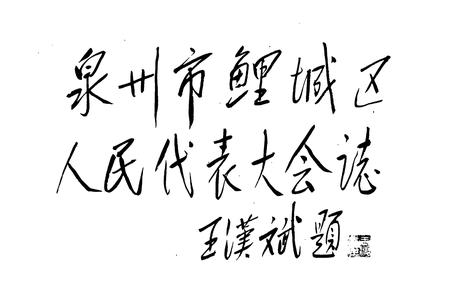 泉州市鲤城区
人民代表大会誌
王漢斌題